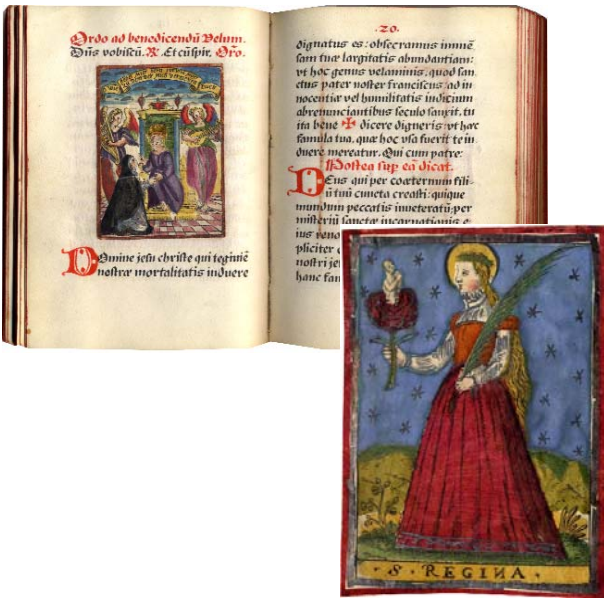 Ordo ad benedicendũ Velum.
Dñs vobiscũ. ℟. Et cũ spir. Orõ.
Domine jesu christe qui tegimẽ
nostræ mortalitatis induere
.20.
dignatus es: obsecramus immẽ
sam tuæ largitatis abundantiam:
vt hoc genus velaminis, quod san
ctus pater noster franciscus, ad in
nocentiæ vel humilitatis indicium
abrenunciantibus seculo sanxit, tu
ita bene ✠ dicere digneris: vt hæc
famula tua, quæ hoc vsa fuerit te in
duere mereatur. Qui cum patre:
Postea sup eã dicat.
DEus qui per coæternum fili
ũ tuũ cuncta creasti: quique
mundum peccatis inueteratũ: per
misteriũ sanctæ incarnationis e
ius reno
pliciter
nostri je
hanc fam
S. REGIИA.